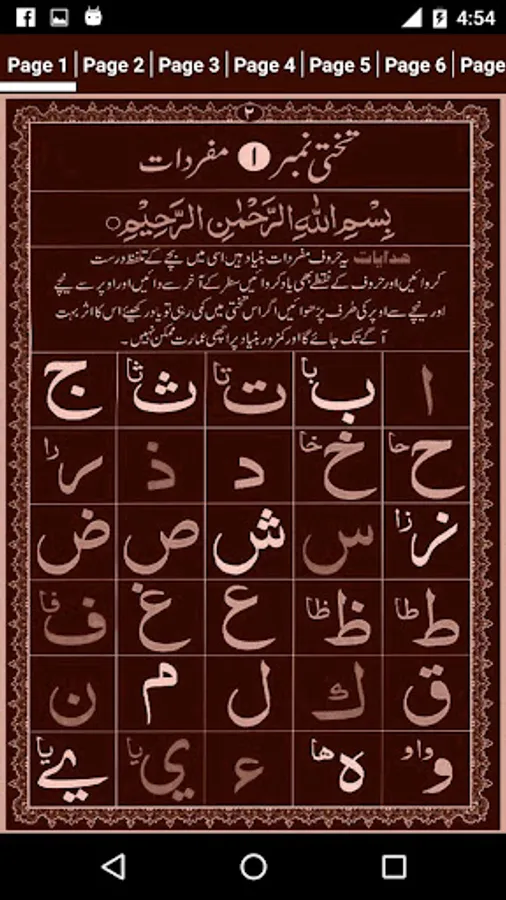 4:54
Page 1 Page 2 Page 3 Page 4 Page 5 Page 6 Page
۲
تختی نمبر ۱ مفردات
بِسْمِ اللهِ الرَّحْمٰنِ الرَّحِيْمِ
ھدایات یہ حروف مفردات بنیاد ہیں اسی میں بچے کے تلفظ درست
کروائیں اور حروف کے نقطے بھی یاد کروائیں سطر کے آخر سے دائیں اور اوپر سے نیچے
اور نیچے سے اوپر کی طرف پڑھوائیں اگر اس تختی میں کمی رہی تو یاد رکھیئے اس کا اثر بہت
آگے تک جائے گا اور کمزور بنیاد پر اچھی عمارت ممکن نہیں۔
ا ب با ت تا ث ثا ج
ح حا خ خا د ذ ر را
ز زا س ش ص ض
ط طا ظ ظا ع غ ف فا
ق ك ل م ن
و واو ه ها ء ي يا ے يا